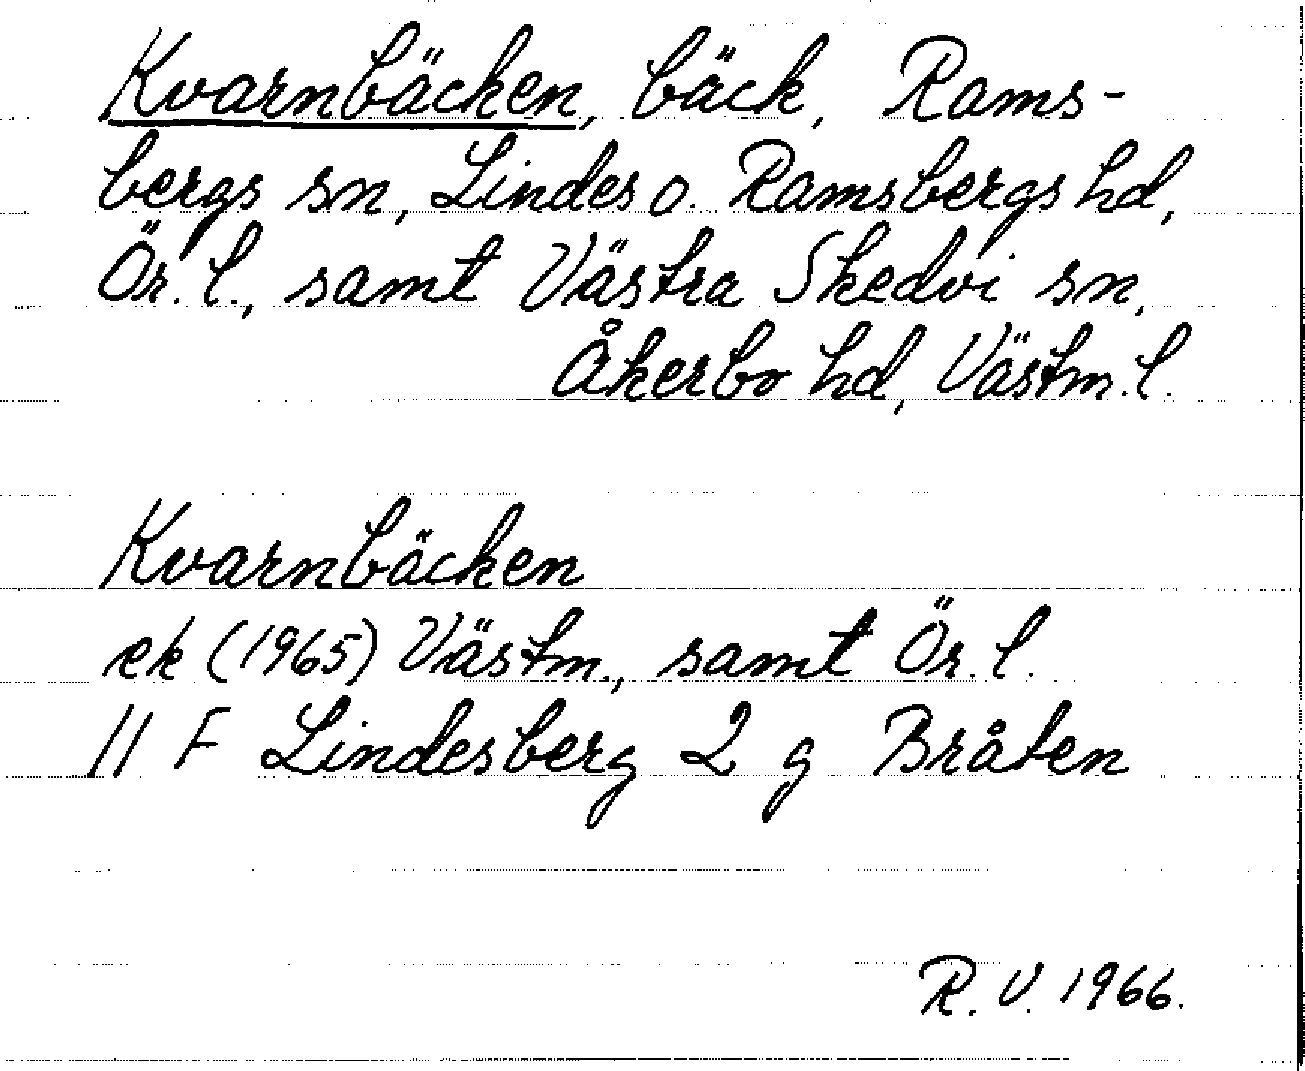 Kvarnbäcken, bäck, Rams-
bergs sn, Lindes o. Ramsbergs hd,
Ör. l., samt Västra Skedvi sn,
Åkerbo hd, Västm. l.
Kvarnbäcken
ek (1965) Västm., samt Ör. l.
11 F Lindesberg 2 g Bråten
R. V. 1966.